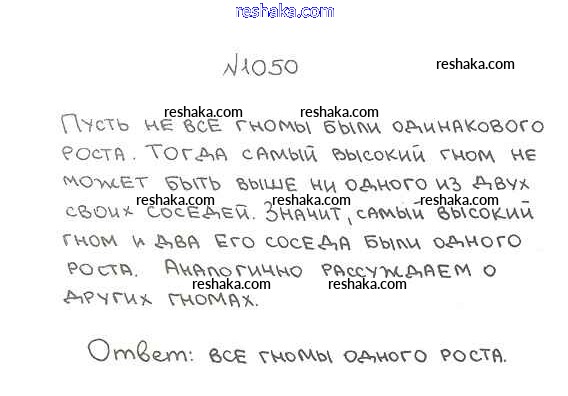 reshaka.com
N1050
reshaka.com
reshaka.com reshaka.com
Пусть не все гномы были одинакового
роста. Тогда самый высокий гном не
может быть выше ни одного из двух
reshaka.com reshaka.com
своих соседей. Значит, самый высокий
гном и два его соседа были одного
роста. Аналогично рассуждаем о
reshaka.com reshaka.com
других гномах.
Ответ: все гномы одного роста.